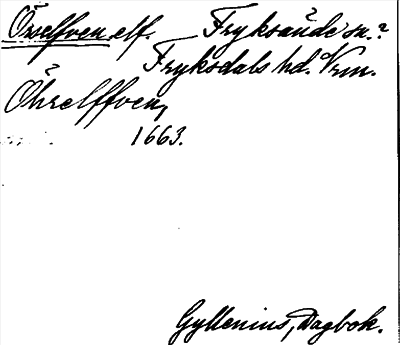 Örelfven, elf. Fryksände sn.?
Fryksdals hd. Vrm.
Öhrelffven,
1663.
Gyllenius, Dagbok.